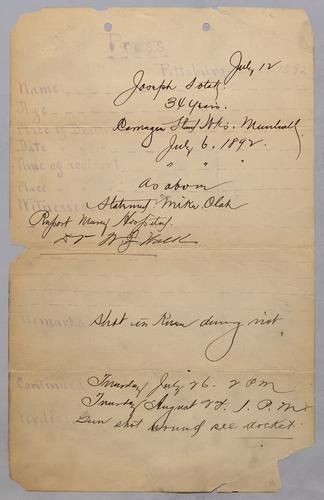 Press
July 12
Pittsburg 1892
Name Joseph Sotak
Age 34 years.
Place of Death Carnegie Steel Wks. Munhall
Date " July 6, 1892.
Time of accident " " "
Place " As above
Witnesses Statement Mike Olah
Report Mercy Hospital
Dr W J
Remarks Shot in Knee during riot
Continued Tuesday July 26. 2 PM
Tuesday August 27. 1. P.M.
Verdict Gun shot wound see docket.